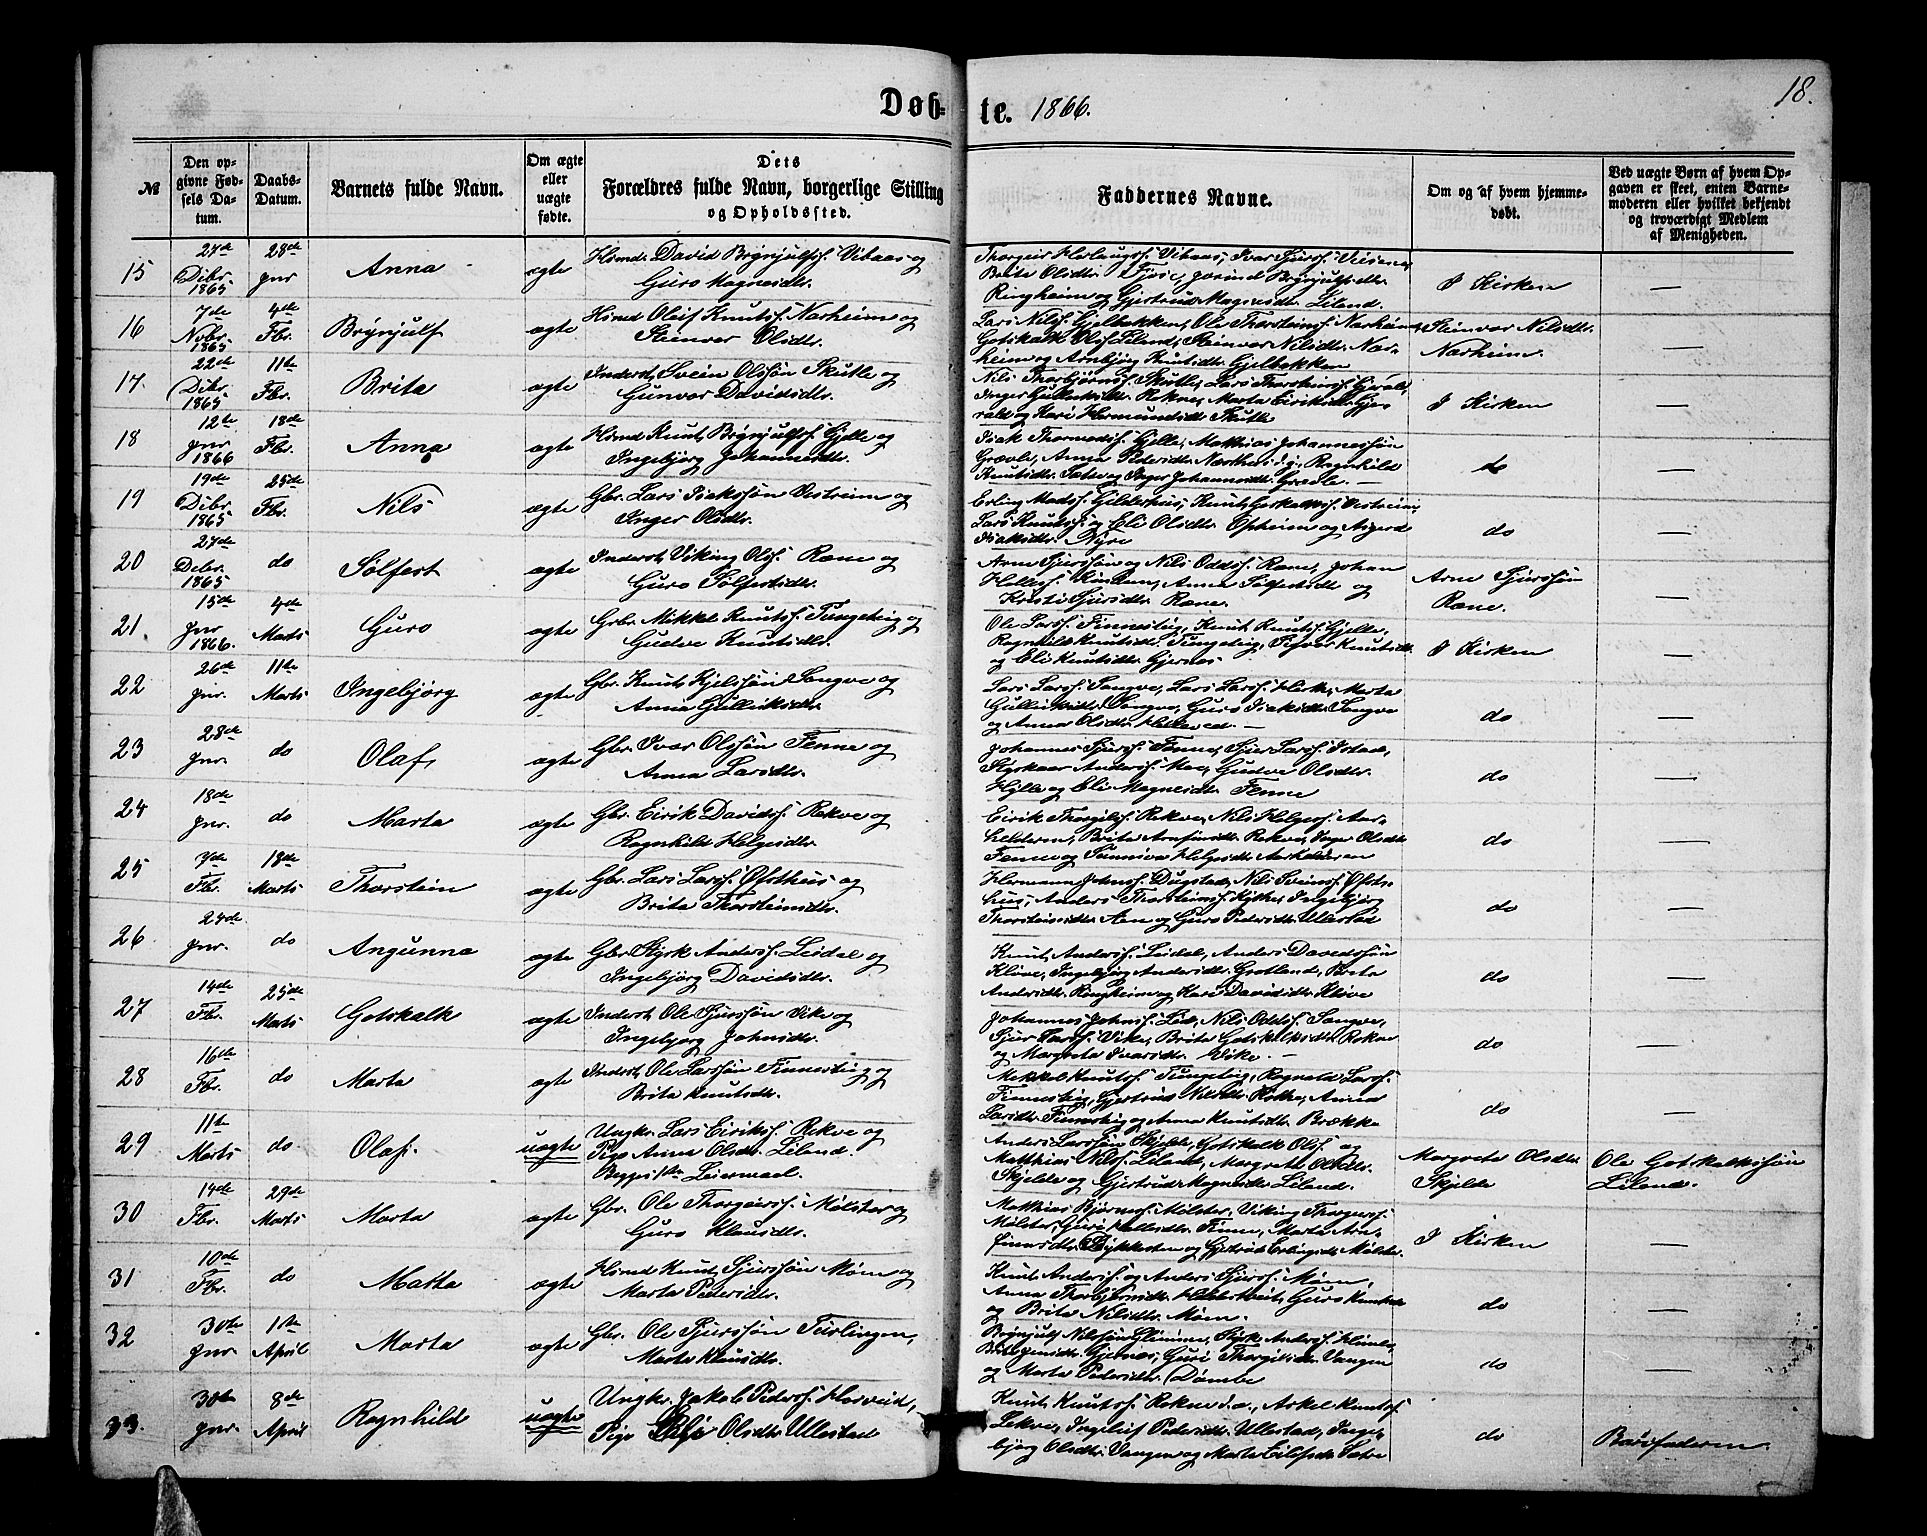 Døb-
te. 1866.
18.
№
Den op-
givne Fød-
sels Da-
tum.
Daabs-
Datum.
Barnets fulde Navn.
Om ægte
eller
uægte
fødte.
Dets
Forældres fulde Navn, borgerlige Stilling
og Opholdssted.
Faddernes Navne.
Om og af hvem hjemme-
døbt.
Ved uægte Børn af hvem Op-
gaven er skeet, enten Barne-
moderen eller hvilket bekjendt
og troværdigt Medlem
af Menigheden.
15 27de Dcbr. 1865 28de Jnr Anna ægte Hsmd. David Brynjulfs. Vibaas og
Guro Magnesdtr.
Brita Olsdtr. Brynjulfsdtr.
Ringheim og Gjertrud Magnesdtr. Liland.
I Kirken —
16 7de Nvbr. 1865 4de Fbr. Brynjulf ægte Hsmd Oleif Knuts. Norheim og
Steinvor Olsdtr.
Lars Nilss. Gjelbakken, Ole Thorsteins. Norheim,
Gotskalk Olss. Liland, Steinvor Nilsdtr. Nor-
heim og Arnbjørg Knutsdtr. Gjelbakken
Steinvor Nilsdtr.
Norheim. —
17. 22de Dcbr. 1865 11te Fbr. Brita ægte Inderst Svein Olssøn Skutle og
Gunvor Davidsdtr.
Nils Thorbjørns. Skutle, Lars Thorsteins.
Marta Eiriksdtr.
og Kari Hermundsdtr Skutle
I Kirken —
18 12te Jnr 1866 18de Fbr. Anna ægte Hsmd Knut Brynjulfs. Gjelle og
Ingebjørg Johannesdtr.
Isak Thormods. Gjelle, Matthias Johannessøn
Græsle, Anna Pedersdtr. Ragnhild
Knutsdtr. og Inger Johannesdtr. Græsle. —
do —
19 19de Dcbr. 1865 25de Fbr. Nils ægte Gbr. Lars Isakssøn Vestreim og
Inger Olsdtr.
Erling Mads. Gjelderhus, Knut Gotskalks. Vestreim,
Lars Knuts. og Eli Olsdtr. Opheim og
Isaksdtr. Nyre
do —
20 27de Dcbr. 1865 do Sølfest ægte Inderst Viking Ols. Rene og
Guro Sølfestsdtr.
Arne Sjurssøn og Nils Odds. Rene, Johan
Anna Sølfestsdtr og
Kristi Sjursdtr. Rene.
Arne Sjurssøn
Rene. —
21. 15de Jnr 1866. 4de Marts Guro ægte Gbr. Mikkel Knuts. Tungeteig og
Gudve Knutsdtr.
Ole Lars. Finnesteig, Knut Knuts. Gjelle,
Ragnhild Knutsdtr. Tungeteig, Knutsdtr.
og Eli Knutsdtr. Gjernes
I Kirken —
22 26de Jnr. 11te Marts Ingebjørg ægte Gbr. Knut Kjelssøn Songve og
Anna Gulleiksdtr.
Lars Lars. Songve, Lars Lars. Marta
Gulleiksdtr. Songve, Guro Isaksdtr. Songve
og Anna Olsdtr. —
do —
23 28de Jnr. do Olaf, ægte Gbr. Ivar Olssøn Fenne og
Anna Larsdtr.
Johannes Sjurs. Fenne, Sjur Lars. Istad,
Styrkaar Anders. Moe, Gudve Olsdtr.
Hylle og Eli Magnesdtr. Fenne
do —
24 18de Jnr. do Marta ægte Gbr. Eirik Davids. Rekve og
Ragnhild Helgesdtr.
Eirik Thorgils. Rekve, Nils Helges.
Brita Arnfinsdtr. Rekve, Inger Olsdtr
Fenne og Sønneva Helgesdtr.
do —
25 3de Fbr. 18de Marts Thorstein ægte Gbr. Lars Lars. Øfsthus og
Brita Thorsteinsdtr.
Hermann Johns. Dugstad, Nils Sveins. Øfst-
hus, Anders Thorsteins. Kyte, Ingebjørg
Thorsteinsdtr. Aen og Guro Pedersdtr. Ullestad
do —
26 24de Jnr. do Angunna ægte Gbr. Styrk Anders. Leidal og
Ingebjørg Davidsdtr.
Knut Anders. Leidal, Anders Davedssøn
Kløve, Ingebjørg Andersdtr. Grotland, Brita
Andersdtr. Ringheim og Kari Davidsdtr. Kløve
do —
27 14de Fbr. 25de Marts Gotskalk ægte Inderst Ole Sjurssøn Vike og
Ingebjørg Johnsdtr.
Johannes Johns. Lid, Nils Odds. Songve,
Sjur Lars. Vike, Brita Gotskalksdtr. Rekve
og Margreta Ivarsdtr. Vike. —
do —
28 16de Fbr. do Marta ægte Inderst Ole Larssøn Finnesteig og
Brita Knutsdtr.
Mikkel Knuts. Tungeteig, Ragnald Lars.
Finnesteig, Gjertrud Nilsdtr. Anna
Larsdtr. Finnesteig og Anna Knutsdtr. Brække
do —
29 11te Marts do Olaf. uægte Ungkr. Lars Eiriks. Rekve og
Pige Anna Olsdtr. Liland.
Begges 1ste Leiermaal.
Anders Larssøn Skjelde, Gotskalk Ols. og
Matthias Nilss. Liland, Margreta Olsdtr.
Skjelde og Gjertrud Magnesdtr. Liland.
Margreta Olsdtr.
Skjelde
Ole Gotskalkssøn
Liland.
30 14de Fbr. 29de Marts Marta ægte Gbr. Ole Thorgeirs. Mølster og
Guro Klausdtr.
Matthias Bjørns. Mølster, Viking Thorgeirs.
Mølster, Guri Finne, Marta Arn-
finnsdtr. Dykkesten og Gjertrud Erlingsdtr. Mølster.
I Kirken —
31 10de Fbr. do Marta ægte Hsmd Knut Sjurssøn Møen og
Marta Pedersdtr.
Knut Anders. og Anders Sjurs. Møen,
Anna Thorbjørnsdtr. Guro Knutsdtr
og Brita Nilsdtr. Møen.
do —
32 30te Jnr 1ste April Marta ægte Gbr. Ole Sjurssøn
Marta Klausdtr.
Brynjulf Nilssøn Styrk Anders.
Gjernes, Guri Thorgilsdtr. Vangen
og Marta Pedersdtr. Dømbe
do —
33. 30te Jnr. 8de April Ragnhild uægte Ungkr. Jakob Peders. Horveid,
Pige Olsdtr. Ullestad
Knut Knuts. Rokne d.æ., Askel Knuts.
Lekve, Ingeleif Pedersdtr. Ullestad, Inge-
bjørg Olsdtr. Vangen og Marta Eilefsdtr. Sætre
do Barnefaderen.